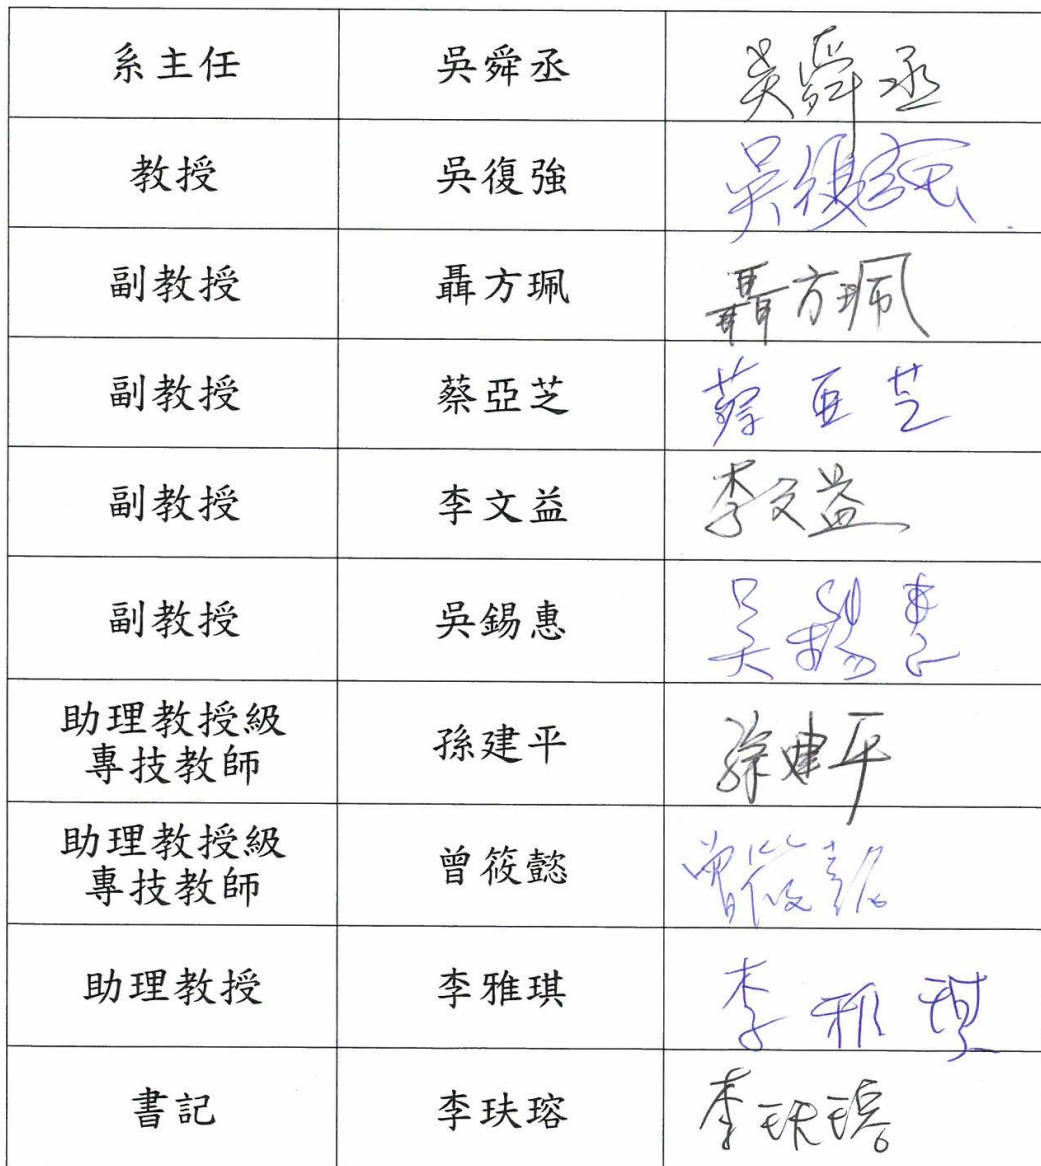 系主任 吳舜丞 吳舜丞
教授 吳復強 吳復強
副教授 聶方珮 聶方珮
副教授 蔡亞芝 蔡亞芝
副教授 李文益 李文益
副教授 吳錫惠 吳錫惠
助理教授級
專技教師 孫建平 孫建平
助理教授級
專技教師 曾筱懿 曾筱懿
助理教授 李雅琪 李雅琪
書記 李玞瑢 李玞瑢